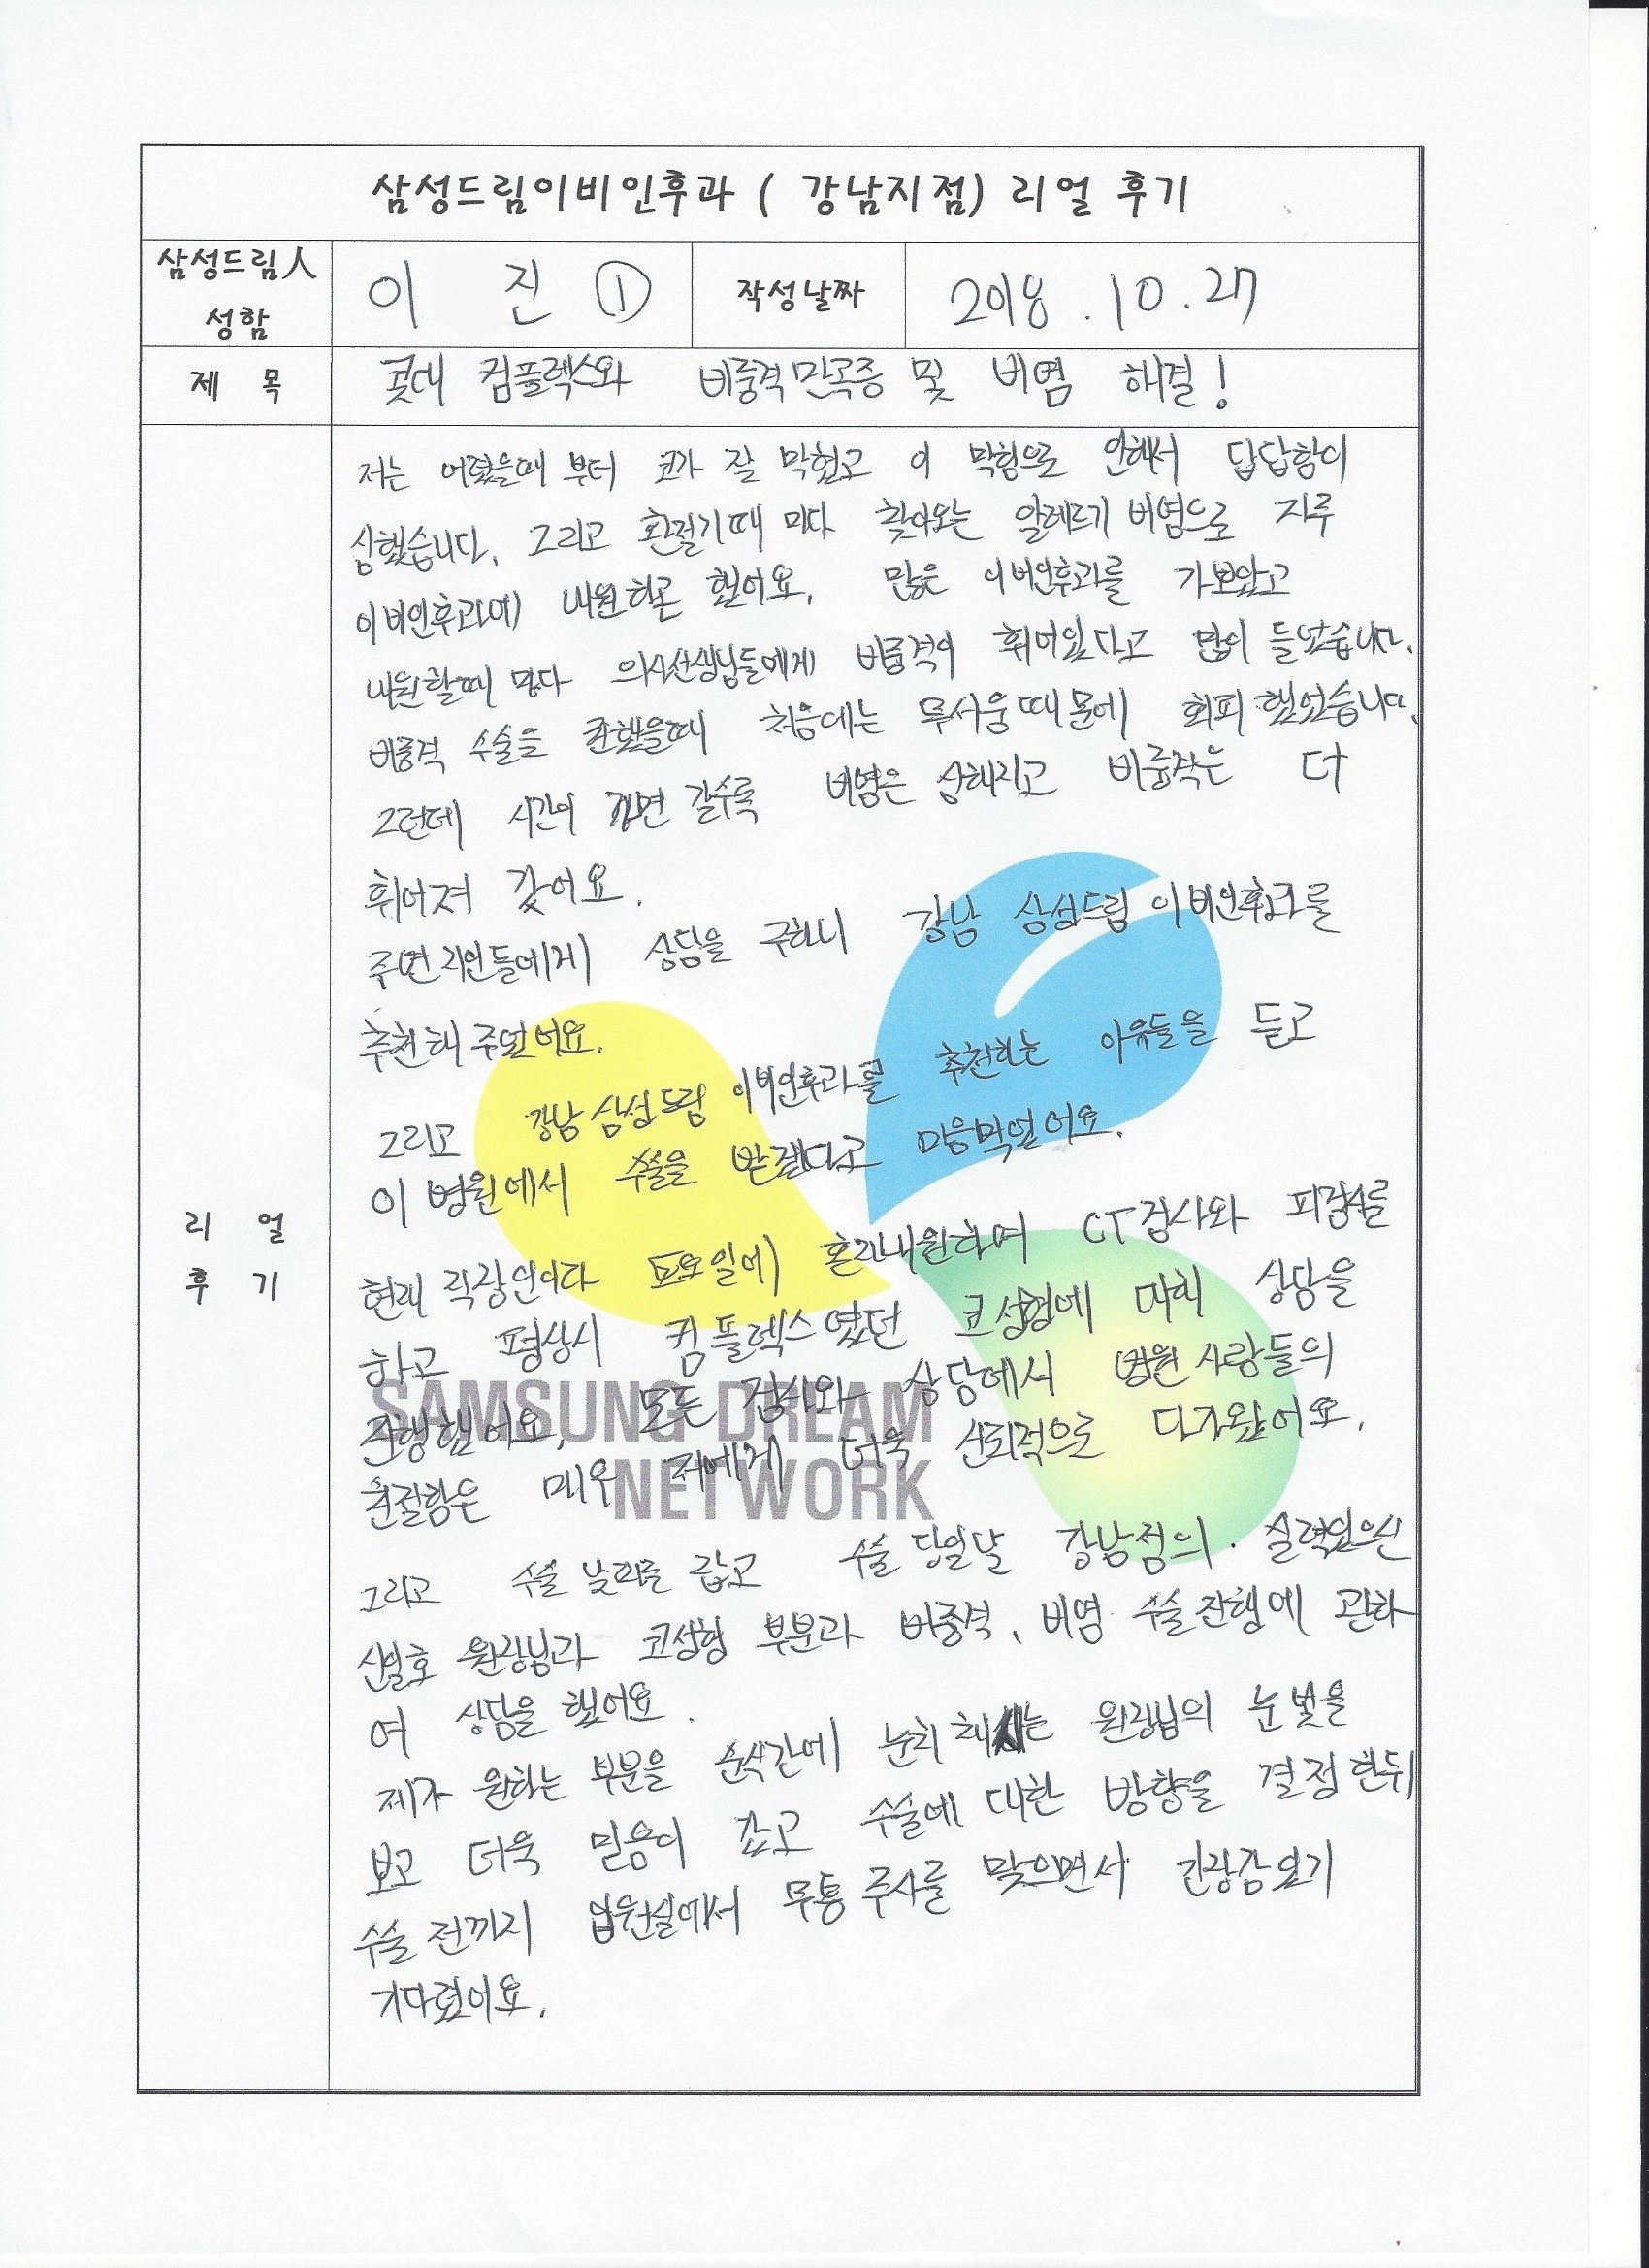 삼성드림이비인후과 ( 강남지점) 리얼 후기
삼성드림人 성함
이 진 ①
작성날짜
2018. 10. 27
제 목
콧대 컴플렉스와 비중격만곡증 및 비염 해결!
리 얼
후 기
저는 어렸을때 부터 코가 잘 막혔고 이 막힘으로 인해서 답답함이
심했습니다. 그리고 환절기때 마다 찾아오는 알레르기 비염으로 자주
이비인후과에 내원하곤 했어요. 많은 이비인후과를 가보았고
내원할때 마다 의사선생님들에게 비중격이 휘어있다고 많이 들었습니다.
비중격 수술을 권했을때 처음에는 무서움때문에 회피했었습니다.
그런데 시간이 가면 갈수록 비염은 심해지고 비중격은 더
휘어져 갔어요.
주변지인들에게 상담을 구하니 강남 삼성드림이비인후과를
추천해 주었어요.
그리고 강남삼성드림 이비인후과를 추천하는 이유들을 듣고
이 병원에서 수술을 받겠다고 마음먹었어요.
현재 직장인이라 토요일에 혼자내원하여 CT검사와 피검사를
하고 평상시 컴플렉스였던 코성형에 대해 상담을
진행했어요. 모든 검사와 상담에서 병원사람들의
친절함은 매우 저에게 더욱 신뢰적으로 다가왔어요.
그리고 수술 날짜를 잡고 수술 당일날 강남점의 실력있으신
신일호 원장님과 코성형 부분과 비중격, 비염 수술진행에 관하
여 상담을 했어요.
제가 원하는 부분을 순식간에 눈치채시는 원장님의 눈빛을
보고 더욱 믿음이 갔고 수술에 대한 방향을 결정한뒤
수술 전까지 입원실에서 무통주사를 맞으면서 긴장감있기
기다렸어요.
SAMSUNG DREAM
NETWORK